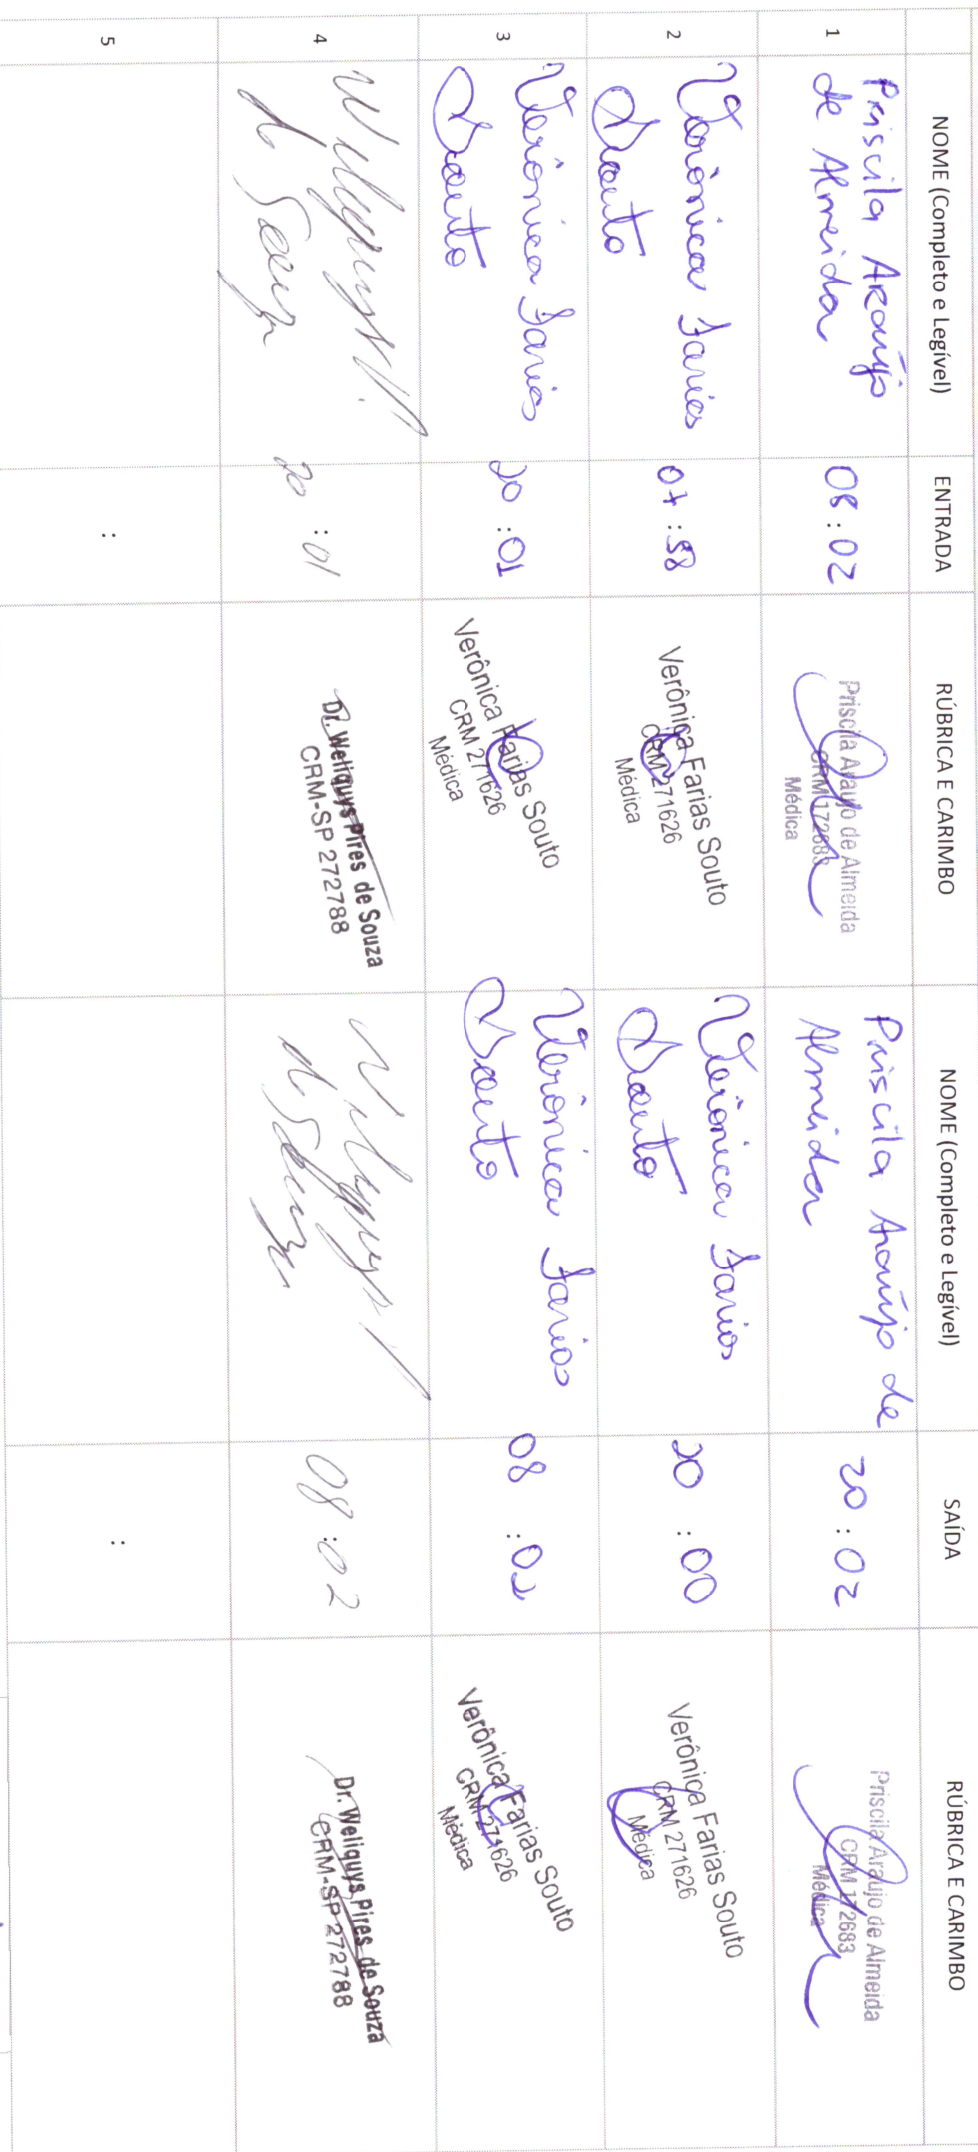 NOME (Completo e Legível) ENTRADA RÚBRICA E CARIMBO NOME (Completo e Legível) SAÍDA RÚBRICA E CARIMBO
1
Priscila Araújo
de Almeida
08:02
Priscila Araujo de Almeida
CRM 172683
Médica
Priscila Araújo de
Almeida
20:02
Priscila Araujo de Almeida
CRM 172683
Médica
2
Verônica Farias
Souto
07:58
Verônica Farias Souto
CRM 271626
Médica
Verônica Farias
Souto
20:00
Verônica Farias Souto
CRM 271626
Médica
3
Verônica Farias
Souto
20:01
Verônica Farias Souto
CRM 271626
Médica
Verônica Farias
Souto
08:02
Verônica Farias Souto
CRM 271626
Médica
4
Weliquys P.
de Souza
20:01
Dr. Weliquys Pires de Souza
CRM-SP 272788
Weliquys P
de Souza
08:02
Dr. Weliquys Pires de Souza
CRM-SP 272788
5
:
: